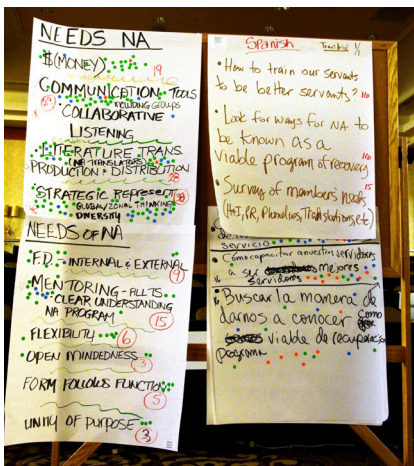 NEEDS NA
$(MONEY)
19
COMMUNICATION - TOOLS
INCLUDING GROUPS
COLLABORATIVE
LISTENING
LITERATURE TRANS.
(NA TRANSLATORS)
PRODUCTION & DISTRIBUTION
28
STRATEGIC Represent
38
GLOBAL/ZONAL THINKING
DIVERSITY
NEEDS OF NA
F.D. - INTERNAL & EXTERNAL
9
MENTORING - FILLTS
CLEAR UNDERSTANDING
NA PROGRAM
15
FLEXIBILITY
6
OPEN MINDEDNESS
3
FORM FOLLOWS FUNCTION
5
UNITY OF PURPOSE
3
Spanish
1/1
• How to train our servants
to be better servants?
• Look for ways for NA to
be known as a
viable program of recovery
16
• Survey of members needs
15
(H+I, PR, Phonelines, Translations, etc)
servicio
Cómo capacitar a nuestros servidores
a ser mejores
servidores
Buscar la manera de
darnos a conocer como
viable de recuperación
programa